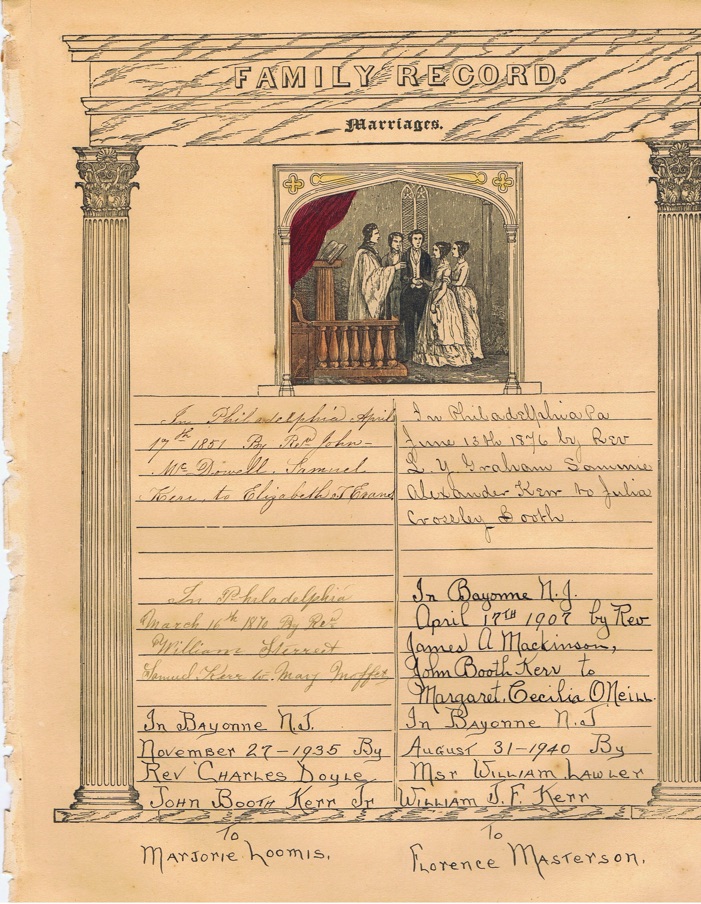 FAMILY RECORD.
Marriages.
In Philadelphia April
17th 1851 By Rev John
Mc Dowell. Samuel
Kerr to Elizabeth J Evans
In Philadelphia
March 16th 1870 By Rev.
William Sterret
Samuel Kerr to May Moffet
In Bayonne N.J.
November 27-1935 By
Rev Charles Doyle
John Booth Kerr Jr
To
Marjorie Loomis.
In Philadelphia Pa
June 13th 1876 by Rev
L. Y. Graham Sammie
Alexander Kerr to Julia
Crossley Booth
In Bayonne N.J.
April 17TH 1907 by Rev
James A Mackinson,
John Booth Kerr to
Margaret. Cecilia O'Neill.
In Bayonne N.J
August 31-1940 By
Msr William Lawler
William J.F. Kerr
To
Florence Masterson.